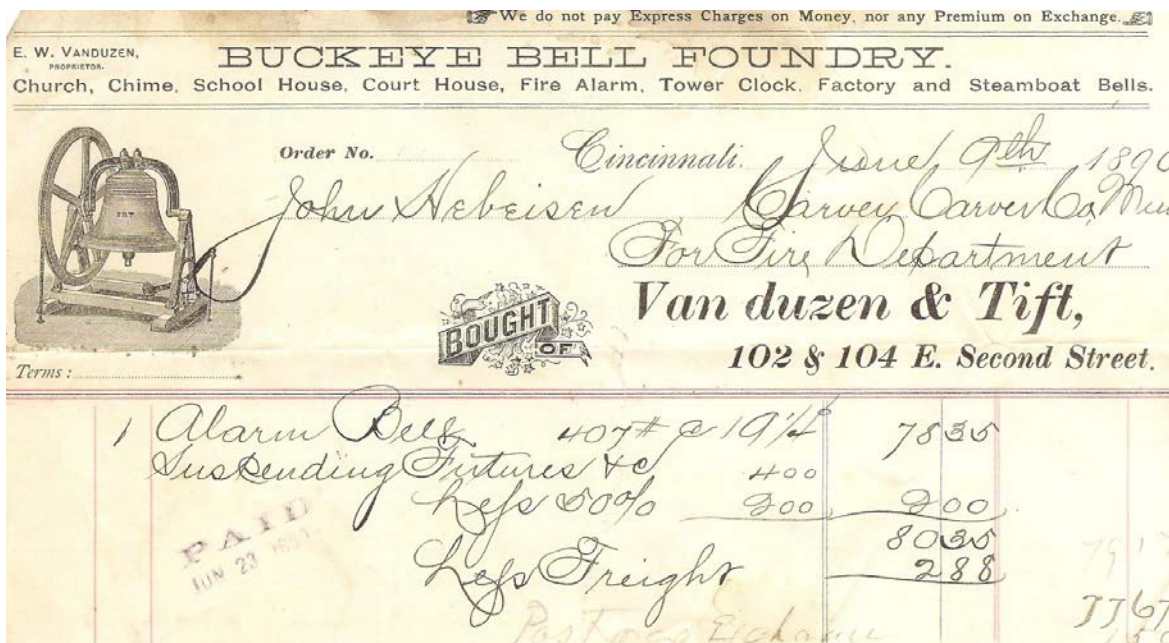 We do not pay Express Charges on Money, nor any Premium on Exchange.
E. W. VANDUZEN,
PROPRIETOR.
BUCKEYE BELL FOUNDRY.
Church, Chime, School House, Court House, Fire Alarm, Tower Clock, Factory and Steamboat Bells.
Order No. Cincinnati. June 9th 1890
John Hebeisen Carver Co. Min
For Fire Department
BOUGHT OF
Van duzen & Tift,
102 & 104 E. Second Street.
Terms:
1 Alarm Bell 407# @ 19 1/4 78 35
Suspending Fixtures &c 4 00
Less 50% 2 00 2 00
80 35
Less Freight 2 88
PAID
JUN 23 1890
Exchange